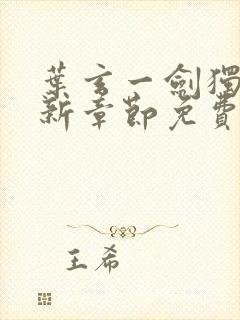 葉玄一劍獨
新章節免費
王希